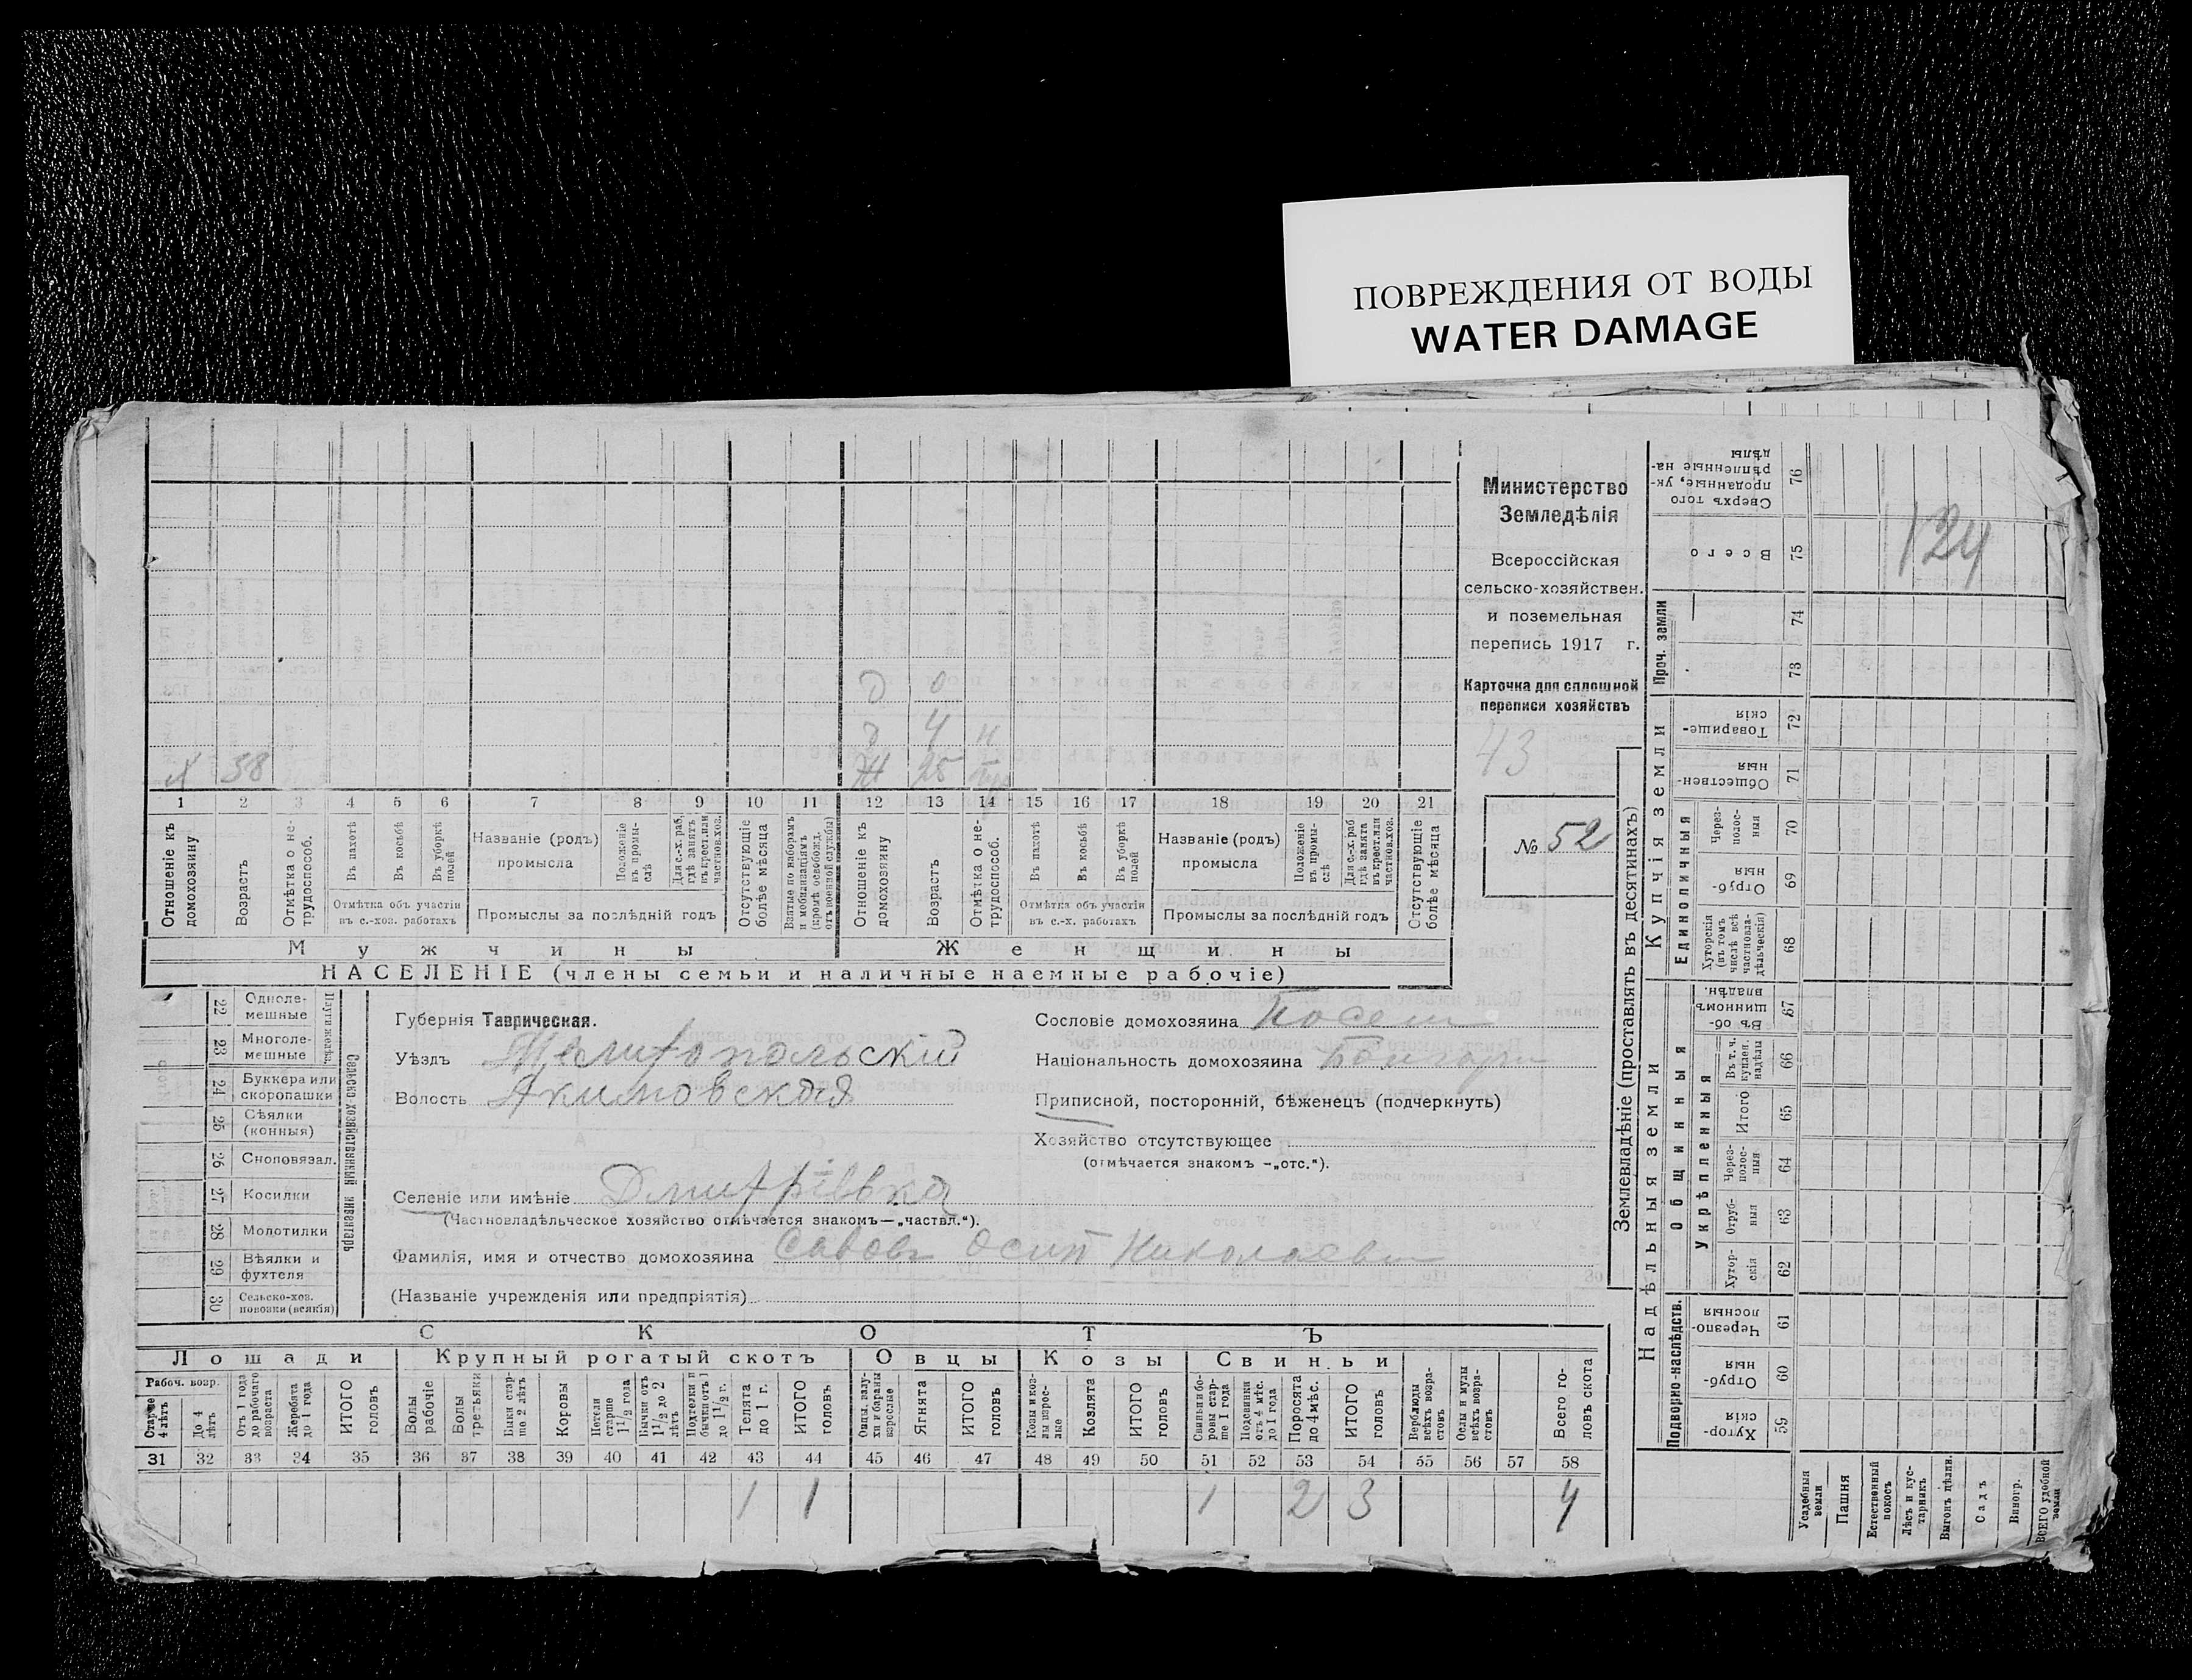 ПОВРЕЖДЕНИЯ ОТ ВОДЫ
WATER DAMAGE
124
Министерство
Земледѣлія
Всероссійская
сельско-хозяйствен.
и поземельная
перепись 1917 г.
Карточка для сплошной
переписи хозяйствъ
43
№ 52
Д 0
Д 4 н
38 Ж 25
1 2 3 4 5 6 7 8 9 10 11 12 13 14 15 16 17 18 19 20 21
Отношеніе къ домохозяину
Возрастъ
Отмѣтка о нетрудоспособ.
Въ пахотѣ
Въ косьбѣ
Въ уборкѣ полей
Отмѣтка объ участіи въ с.-хоз. работахъ
Названіе (родъ) промысла
Положеніе въ промыслѣ
Для с.-х. раб. гдѣ занятъ въ крест. или частновл. хоз.
Промыслы за послѣдній годъ
Отсутствующіе болѣе мѣсяца
Взятые по наборамъ и мобилизаціямъ (кромѣ освобожд. отъ военной службы)
Отношеніе къ домохозяину
Возрастъ
Отмѣтка о нетрудоспособ.
Въ пахотѣ
Въ косьбѣ
Въ уборкѣ полей
Отмѣтка объ участіи въ с.-х. работахъ
Названіе (родъ) промысла
Положеніе въ промыслѣ
Для с.-х. раб. гдѣ занята въ крест. или частнов. хоз.
Промыслы за послѣдній годъ
Отсутствующіе болѣе мѣсяца
Мужчины
Женщины
НАСЕЛЕНІЕ (члены семьи и наличные наемные рабочіе)
22 Однолемешные
23 Многолемешные
24 Буккера или скоропашки
25 Сѣялки (конныя)
26 Сноповязал.
27 Косилки
28 Молотилки
29 Вѣялки и фухтеля
30 Сельско-хоз. повозки (всякія)
Плуги желѣз.
Сельско-хозяйственный инвентарь
Губернія Таврическая.
Уѣздъ Мелитопольскій
Волость Акимовская
Селеніе или имѣніе Дмитрівка
(Частновладѣльческое хозяйство отмѣчается знакомъ—„частвл.“).
Фамилія, имя и отчество домохозяина Савовъ Осип Николаевич
(Названіе учрежденія или предпріятія)
Сословіе домохозяина посел
Національность домохозяина Болгари
Приписной, посторонній, бѣженецъ (подчеркнуть)
Хозяйство отсутствующее
(отмѣчается знакомъ —„отс.“).
СКОТЪ
Лошади Крупный рогатый скотъ Овцы Козы Свиньи
Рабоч. возр.
Старше 4 лѣтъ
До 4 лѣтъ
Отъ 1 года до рабочаго возраста
Жеребята до 1 года
ИТОГО головъ
Волы рабочіе
Волы третьяки
Быки старше 2 лѣтъ
Коровы
Нетели старше 1 1/2 года
Бычки отъ 1 1/2 до 2 лѣтъ
Подтелки и бычки отъ 1 до 1 1/2 г.
Телята до 1 г.
ИТОГО головъ
Овцы, валухи и бараны взрослые
Ягнята
ИТОГО головъ
Козы и козлы взрослые
Козлята
ИТОГО головъ
Свиньи и боровы старше 1 года
Подсвинки отъ 4 мѣс. до 1 года
Поросята до 4 мѣс.
ИТОГО головъ
Верблюды всѣхъ возрастовъ
Ослы и мулы всѣхъ возрастовъ
Всего головъ скота
31 32 33 34 35 36 37 38 39 40 41 42 43 44 45 46 47 48 49 50 51 52 53 54 55 56 57 58
1 1 1 2 3 4
Землевладѣніе (проставлять въ десятинахъ)
Надѣльныя земли
Купчія земли
Проч. земли
Подворно-наслѣдств.
Общинныя
Укрѣпленныя
Единоличныя
Сверхъ того проданные, укрѣпленные надѣлы 76
Всего 75
74
73
Товарищескія 72
Общественныя 71
Черезполосныя 70
Отрубныя 69
Хуторскія (въ томъ числѣ всѣ частновладѣльческія) 68
Въ общинномъ владѣн. 67
Въ т. ч. куплен. надѣлы 66
Итого 65
Черезполосныя 64
Отрубныя 63
Хуторскія 62
Черезполосныя 61
Отрубныя 60
Хуторскія 59
Усадебныя земли
Пашня
Естественный покосъ
Лѣсъ и кустарникъ
Выгонъ цѣлин.
Садъ
Виногр.
ВСЕГО удобной земли